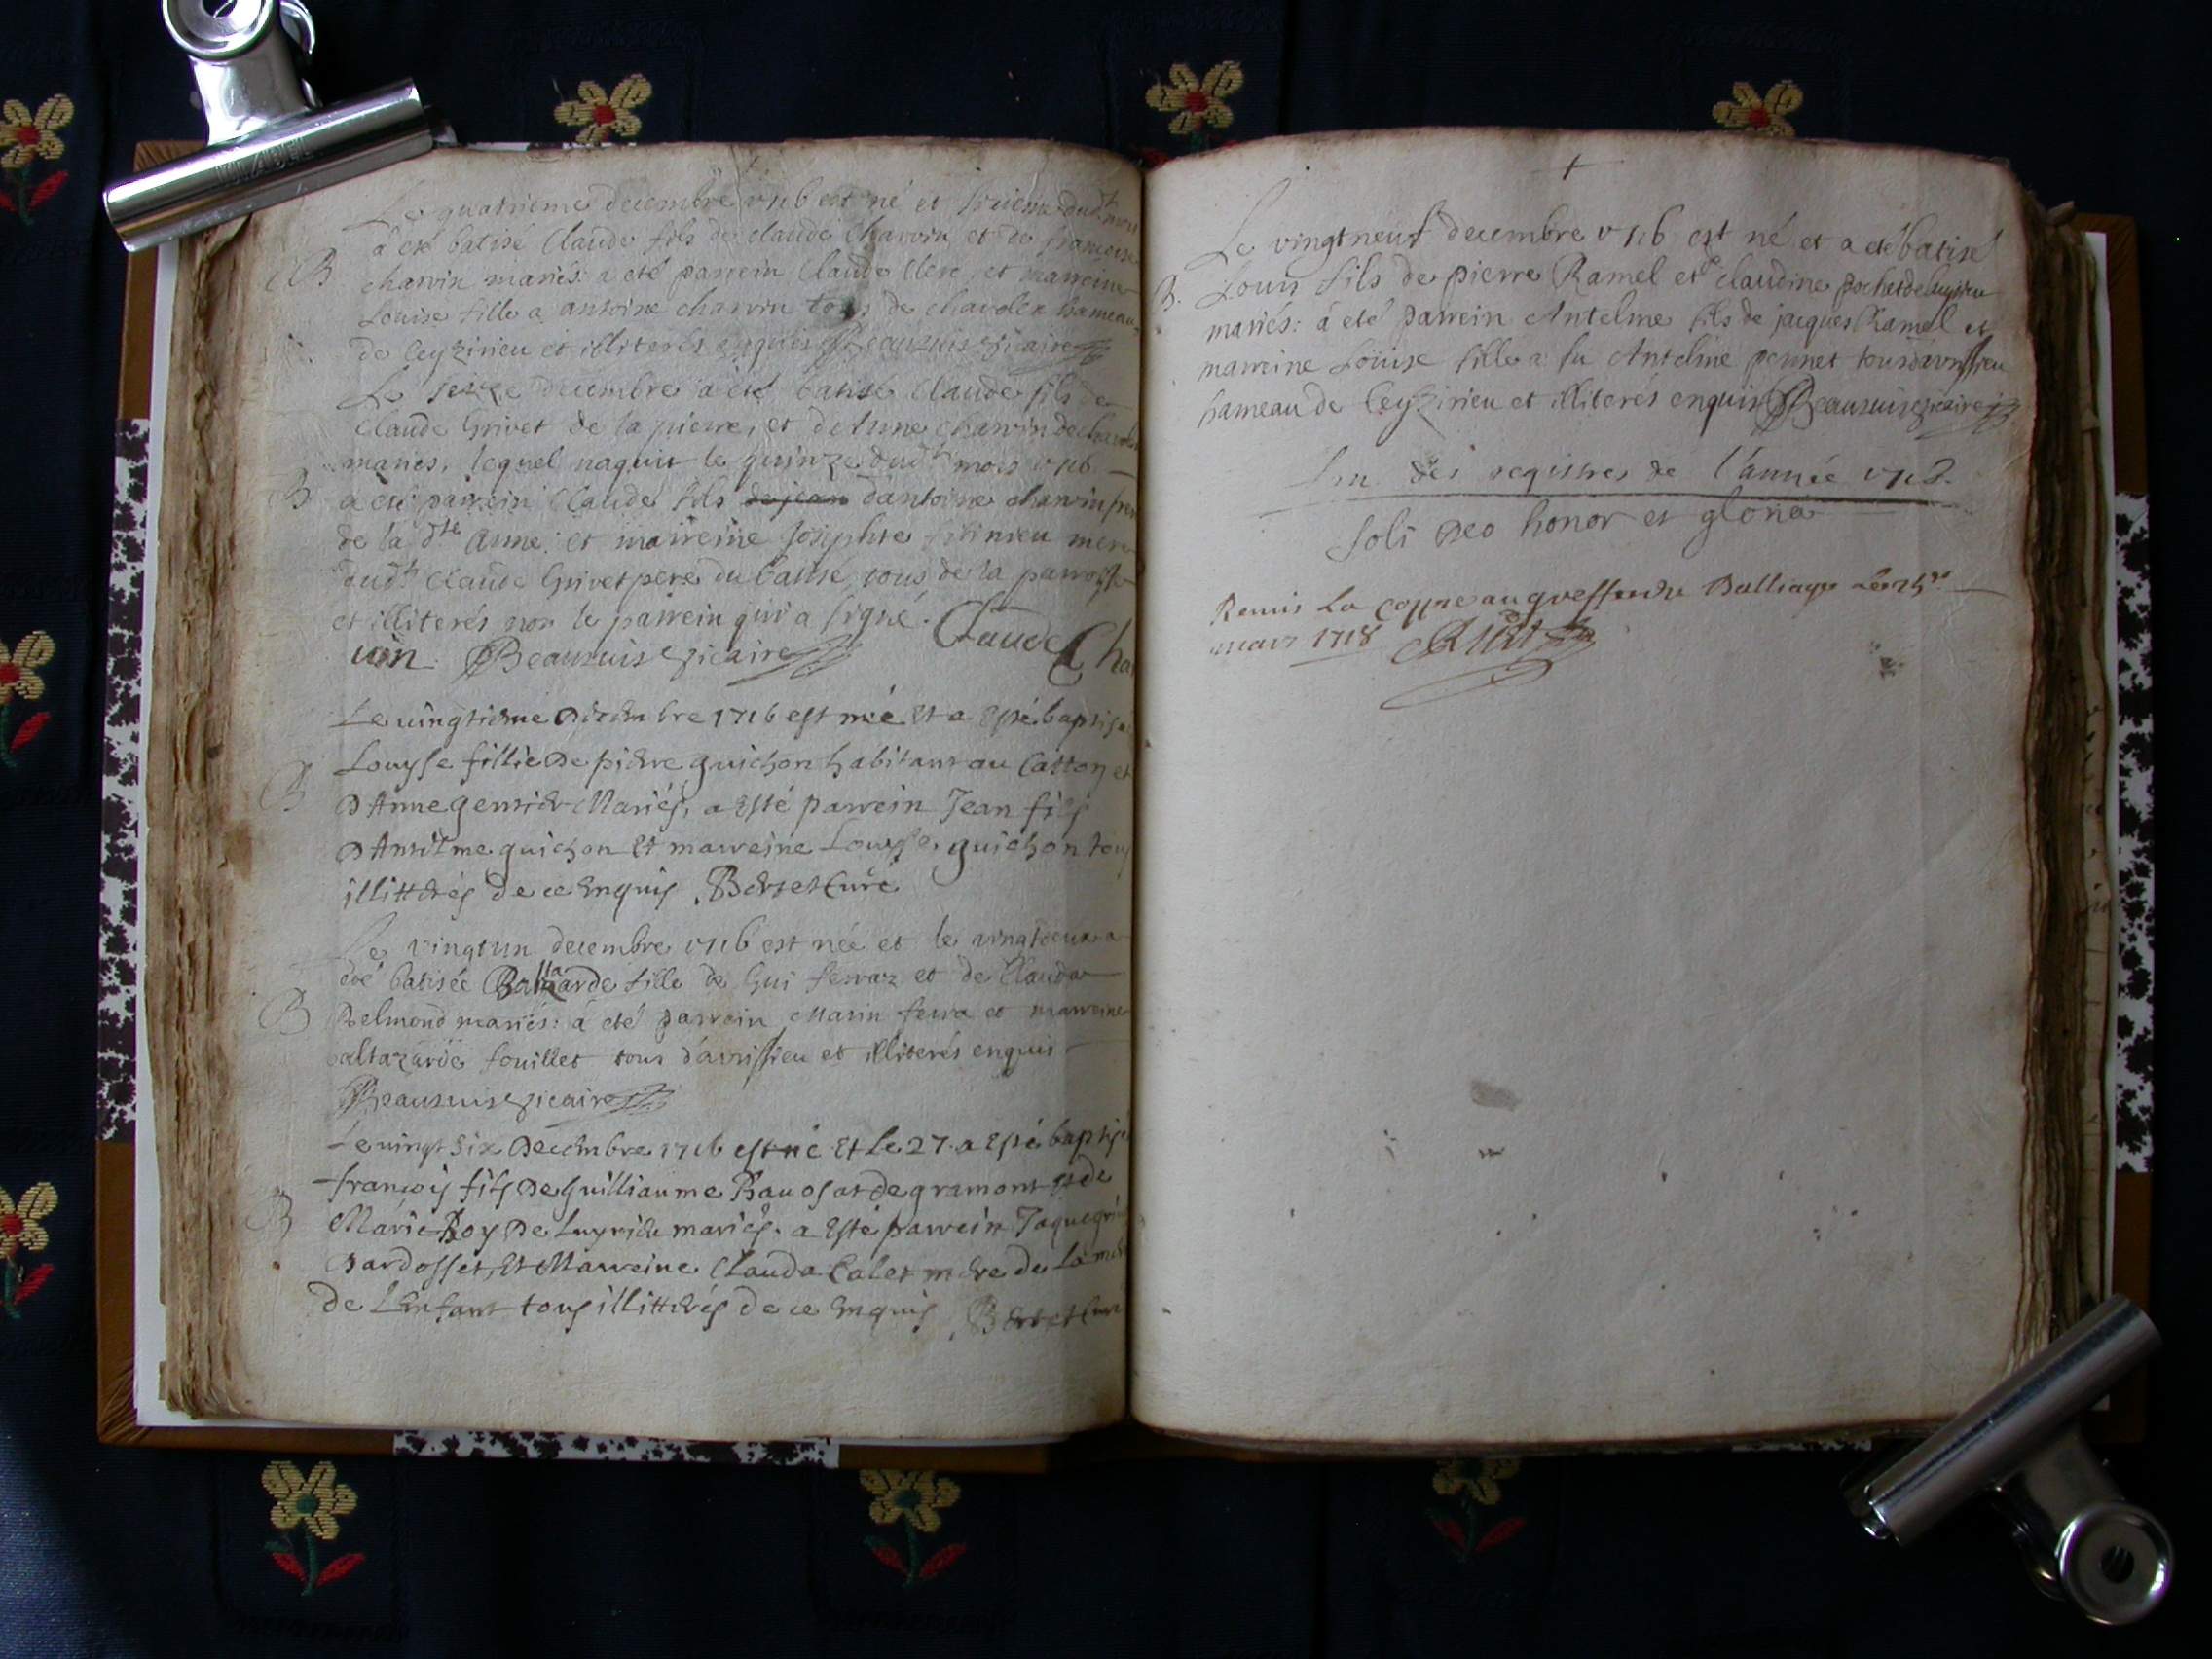 Le quatrieme decembre 1716 est né et
a eté batisé Claude fils de claude Charvin et de francoise
B
charvin mariés: a eté parrein Claude Clerc, et marreine
Louise fille a antoine charvin tous de chavolex hameau
de Ceyzirieu et illiterés enquis Beauvuis vicaire
Le seize decembre a eté batisé Claude fils de
Claude Grivet de la pierre, et de Anne charvin de
mariés, lequel naquit le quinze dudt mois 1716
B
a eté parrein Claude fils de jean d'antoine charvin
de la dte Anne: et marreine Josephte mere
dudt Claude Grivet pere du batisé tous de la parroisse
et illiterés non le parrein qui a signé. Claude Cha
vin Beauvuis vicaire
Le vingtieme decembre 1716 est née Et a Esté baptise
B
Louyse fillie De pierre guichon habitant au Catton et
D'Anne gentier Mariés, a Esté parrein Jean fils
D'Antelme guichon Et marreine Louyse guichon tous
illitterés de ce Enquis. Bertet Curé
Le vingtun decembre 1716 est née et le vingtdeux a
eté batisée Baltazarde fille de Gui ferraz et de Clauda
B
Belmond mariés: a eté parrein Marin ferra et marreine
baltazarde fouillet tous d'avrissieu et illiterés enquis
Beauvuis vicaire
Le vingt Six Decembre 1716 est né Et Le 27. a Esté baptisé
françois fils De Guilliaume Ravosat de gramont et de
B
Marie Roy De Luyrieu mariés. a Esté parrein Jaque
Bardosset, Et Marreine Clauda Calet mere de La mere
de L'Enfant tous illitterés de ce Enquis. Bertet Curé
+
Le vingtneuf decembre 1716 est né et a eté batisé
B.
Louis fils de pierre Ramel et de claudine pochet de luyrieu
mariés: a eté parrein Antelme fils de jacques Ramel et
marreine Louise fille a fu Antelme pernet tous d'avrissieu
hameau de Ceyzirieu et illiterés enquis Beauvuis vicaire
fin des registres de l'année 1716.
soli Deo honor et gloria
Remis La coppie au greffe du Balliage Le
mars 1718